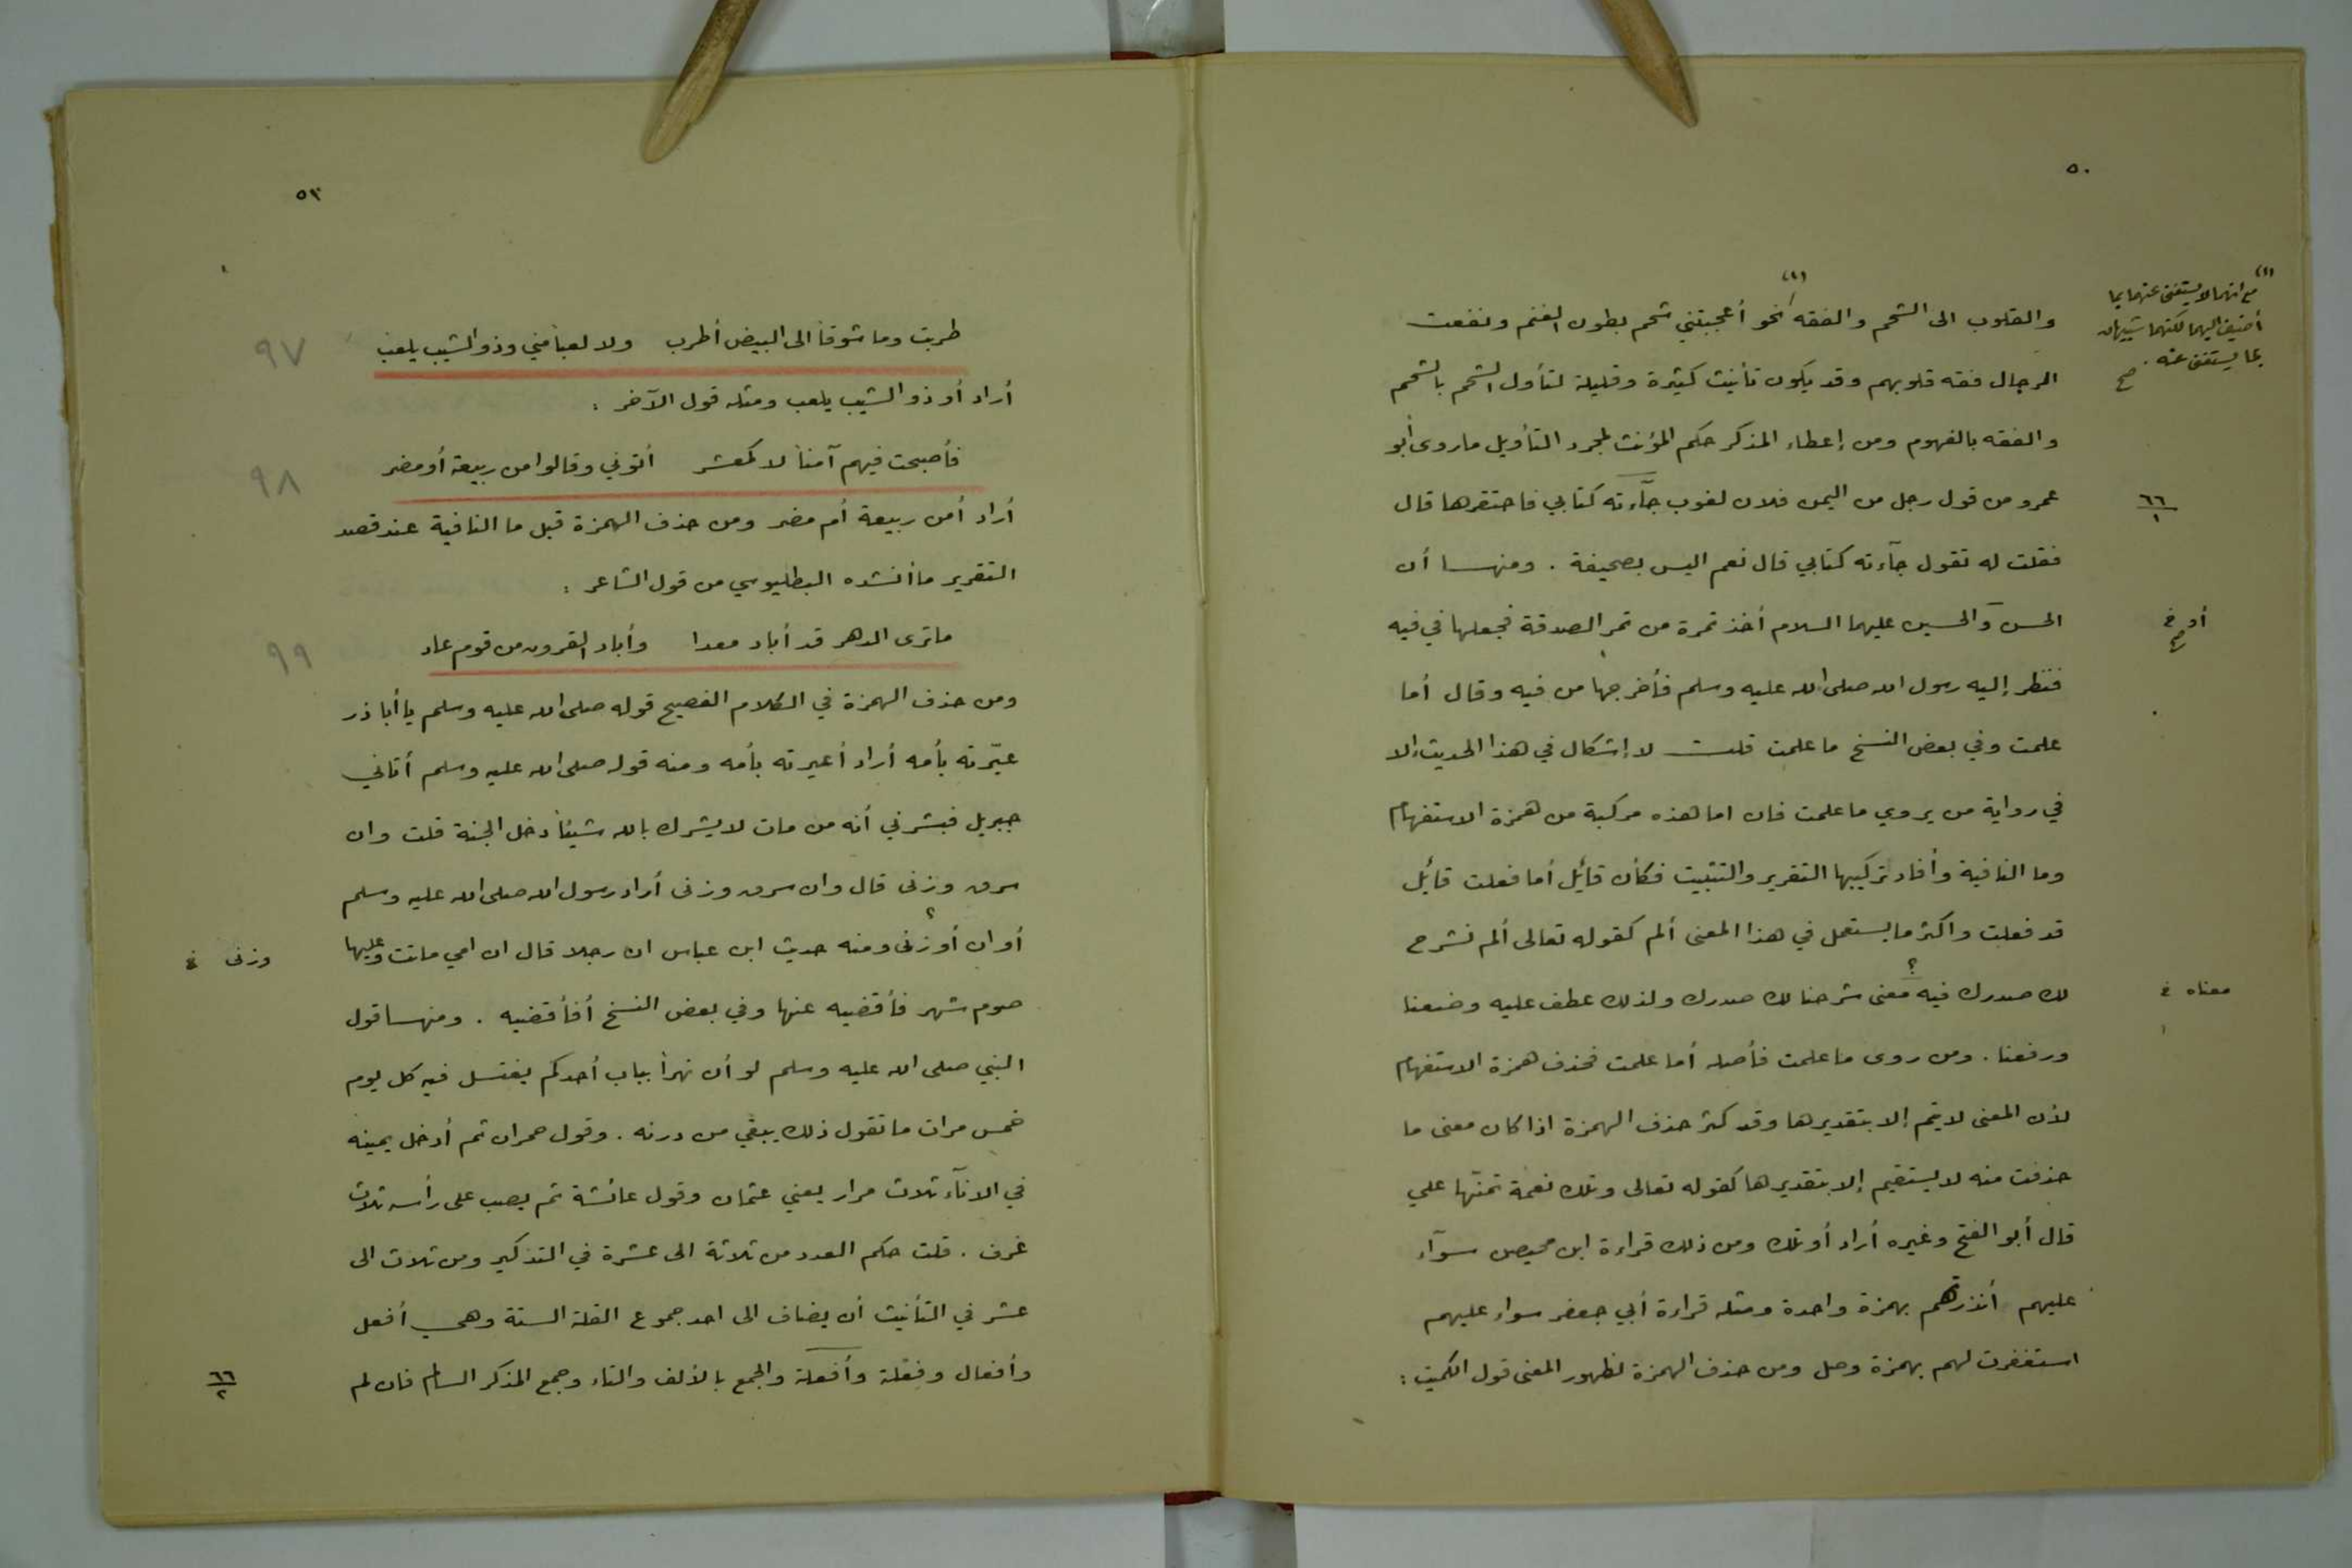 ٥٠
والقلوب الى الشحم والفقه (١) نحو أعجبتني شحم بطون الغنم ونفعت
الرجال فقه قلوبهم وقد يكون تأنيث كثيرة وقليلة لتأول الشحم بالشحم
والفقه بالفهوم ومن إعطاء المذكر حكم المؤنث لمجرد التأويل ماروى أبو
عمرو من قول رجل من اليمن فلان لغوب جآءته كتابي فاحتقرها قال
فقلت له تقول جآءته كتابي قال نعم اليس بصحيفة . ومنها أن
الحسن والحسين عليهما السلام أخذ تمرة من تمر الصدقة فجعلها في فيه
فنظر إليه رسول الله صلى الله عليه وسلم فأخرجها من فيه وقال أما
علمت وفي بعض النسخ ما علمت قلت لا إشكال في هذا الحديث إلا
في رواية من يروي ما علمت فان اما هذه مركبة من همزة الاستفهام
وما النافية وأفاد تركيبها التقرير والتثبيت فكأن قآئل أما فعلت قآئل
قد فعلت واكثر ما يستعمل في هذا المعنى ألم كقوله تعالى ألم نشرح
لك صدرك فيه معنى ؟ شرحنا لك صدرك ولذلك عطف عليه وضعنا
ورفعنا . ومن روى ما علمت فأصله أما علمت فحذف همزة الاستفهام
لأن المعنى لا يتم إلا بتقديرها وقد كثر حذف الهمزة اذا كان معنى ما
حذفت منه لا يستقيم إلا بتقديرها كقوله تعالى وتلك نعمة تمنّها علي
قال أبو الفتح وغيره أراد أو تلك ومن ذلك قراءة ابن محيصن سوآء
عليهم أنذرتهم بهمزة واحدة ومثله قراءة أبي جعفر سواء عليهم
استغفرت لهم بهمزة وصل ومن حذف الهمزة لظهور المعنى قول الكميت :
(١)
مع انهما لا يستغنى عنهما بما
أضيف اليهما لكنهما شبيهان
بما يستغنى عنه . صح
٦٦
١
أو خ
صح
معناه خ
٥١
طربت وما شوقاً الى البيض أطرب ولا لعباً مني وذو الشيب يلعب ٩٧
أراد أو ذو الشيب يلعب ومثله قول الآخر :
فأصبحت فيهم آمناً لا كمعشر أتوني وقالوا من ربيعة أو مضر ٩٨
أراد أمن ربيعة أم مضر ومن حذف الهمزة قبل ما النافية عند قصد
التقرير ما أنشده البطليوسي من قول الشاعر :
ما ترى الدهر قد أباد معدا وأباد القرون من قوم عاد ٩٩
ومن حذف الهمزة في الكلام الفصيح قوله صلى الله عليه وسلم يا أبا ذر
عيّرته بأمه أراد أعيرته بأمه ومنه قوله صلى الله عليه وسلم أتاني
جبريل فبشرني أنه من مات لا يشرك بالله شيئاً دخل الجنة قلت وان
سرق وزنى قال وان سرق وزنى أراد رسول الله صلى الله عليه وسلم
أو ان أوزنى ؟ ومنه حديث ابن عباس ان رجلا قال ان امي ماتت وعليها
وزنى خ
صوم شهر فأقضيه عنها وفي بعض النسخ أفأقضيه . ومنها قول
النبي صلى الله عليه وسلم لو أن نهراً بباب أحدكم يغتسل فيه كل يوم
خمس مرات ما تقول ذلك يبقي من درنه . وقول حمران ثم أدخل يمينه
في الانآء ثلاث مرار يعني عثمان وقول عائشة ثم يصب على رأسه ثلاث
غرف . قلت حكم العدد من ثلاثة الى عشرة في التذكير ومن ثلاث الى
عشر في التأنيث أن يضاف الى احد جموع القلة الستة وهي أفعل
وأفعال وفعلة وأفعلة والجمع بالألف والتاء وجمع المذكر السالم فان لم
٦٦
٢